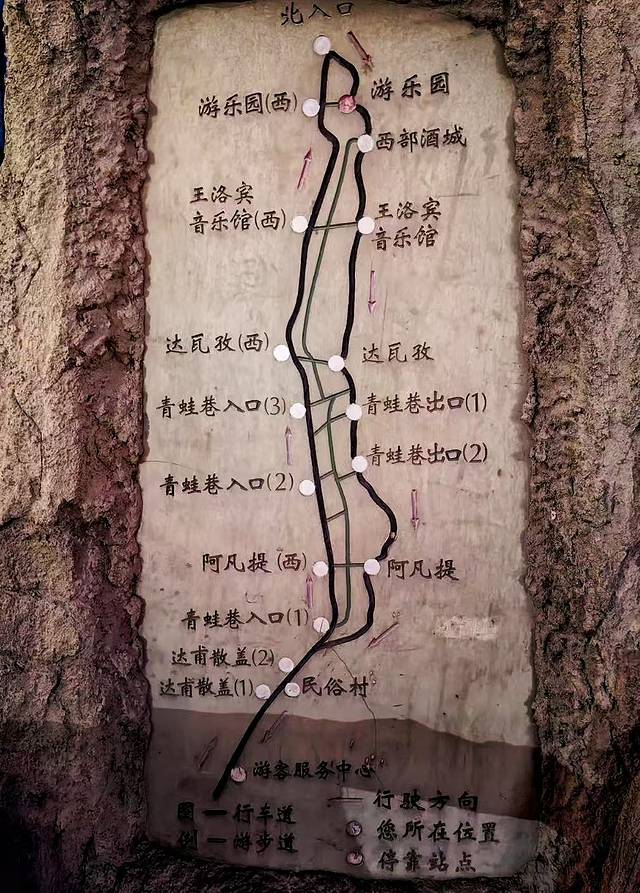 北入口
游乐园(西)
游乐园
西部酒城
王洛宾
音乐馆(西)
王洛宾
音乐馆
达瓦孜(西)
达瓦孜
青蛙巷入口(3)
青蛙巷出口(1)
青蛙巷出口(2)
青蛙巷入口(2)
阿凡提(西)
阿凡提
青蛙巷入口(1)
达甫散盖(2)
达甫散盖(1)
民俗村
游客服务中心
图例
行车道
游步道
行驶方向
您所在位置
停靠站点